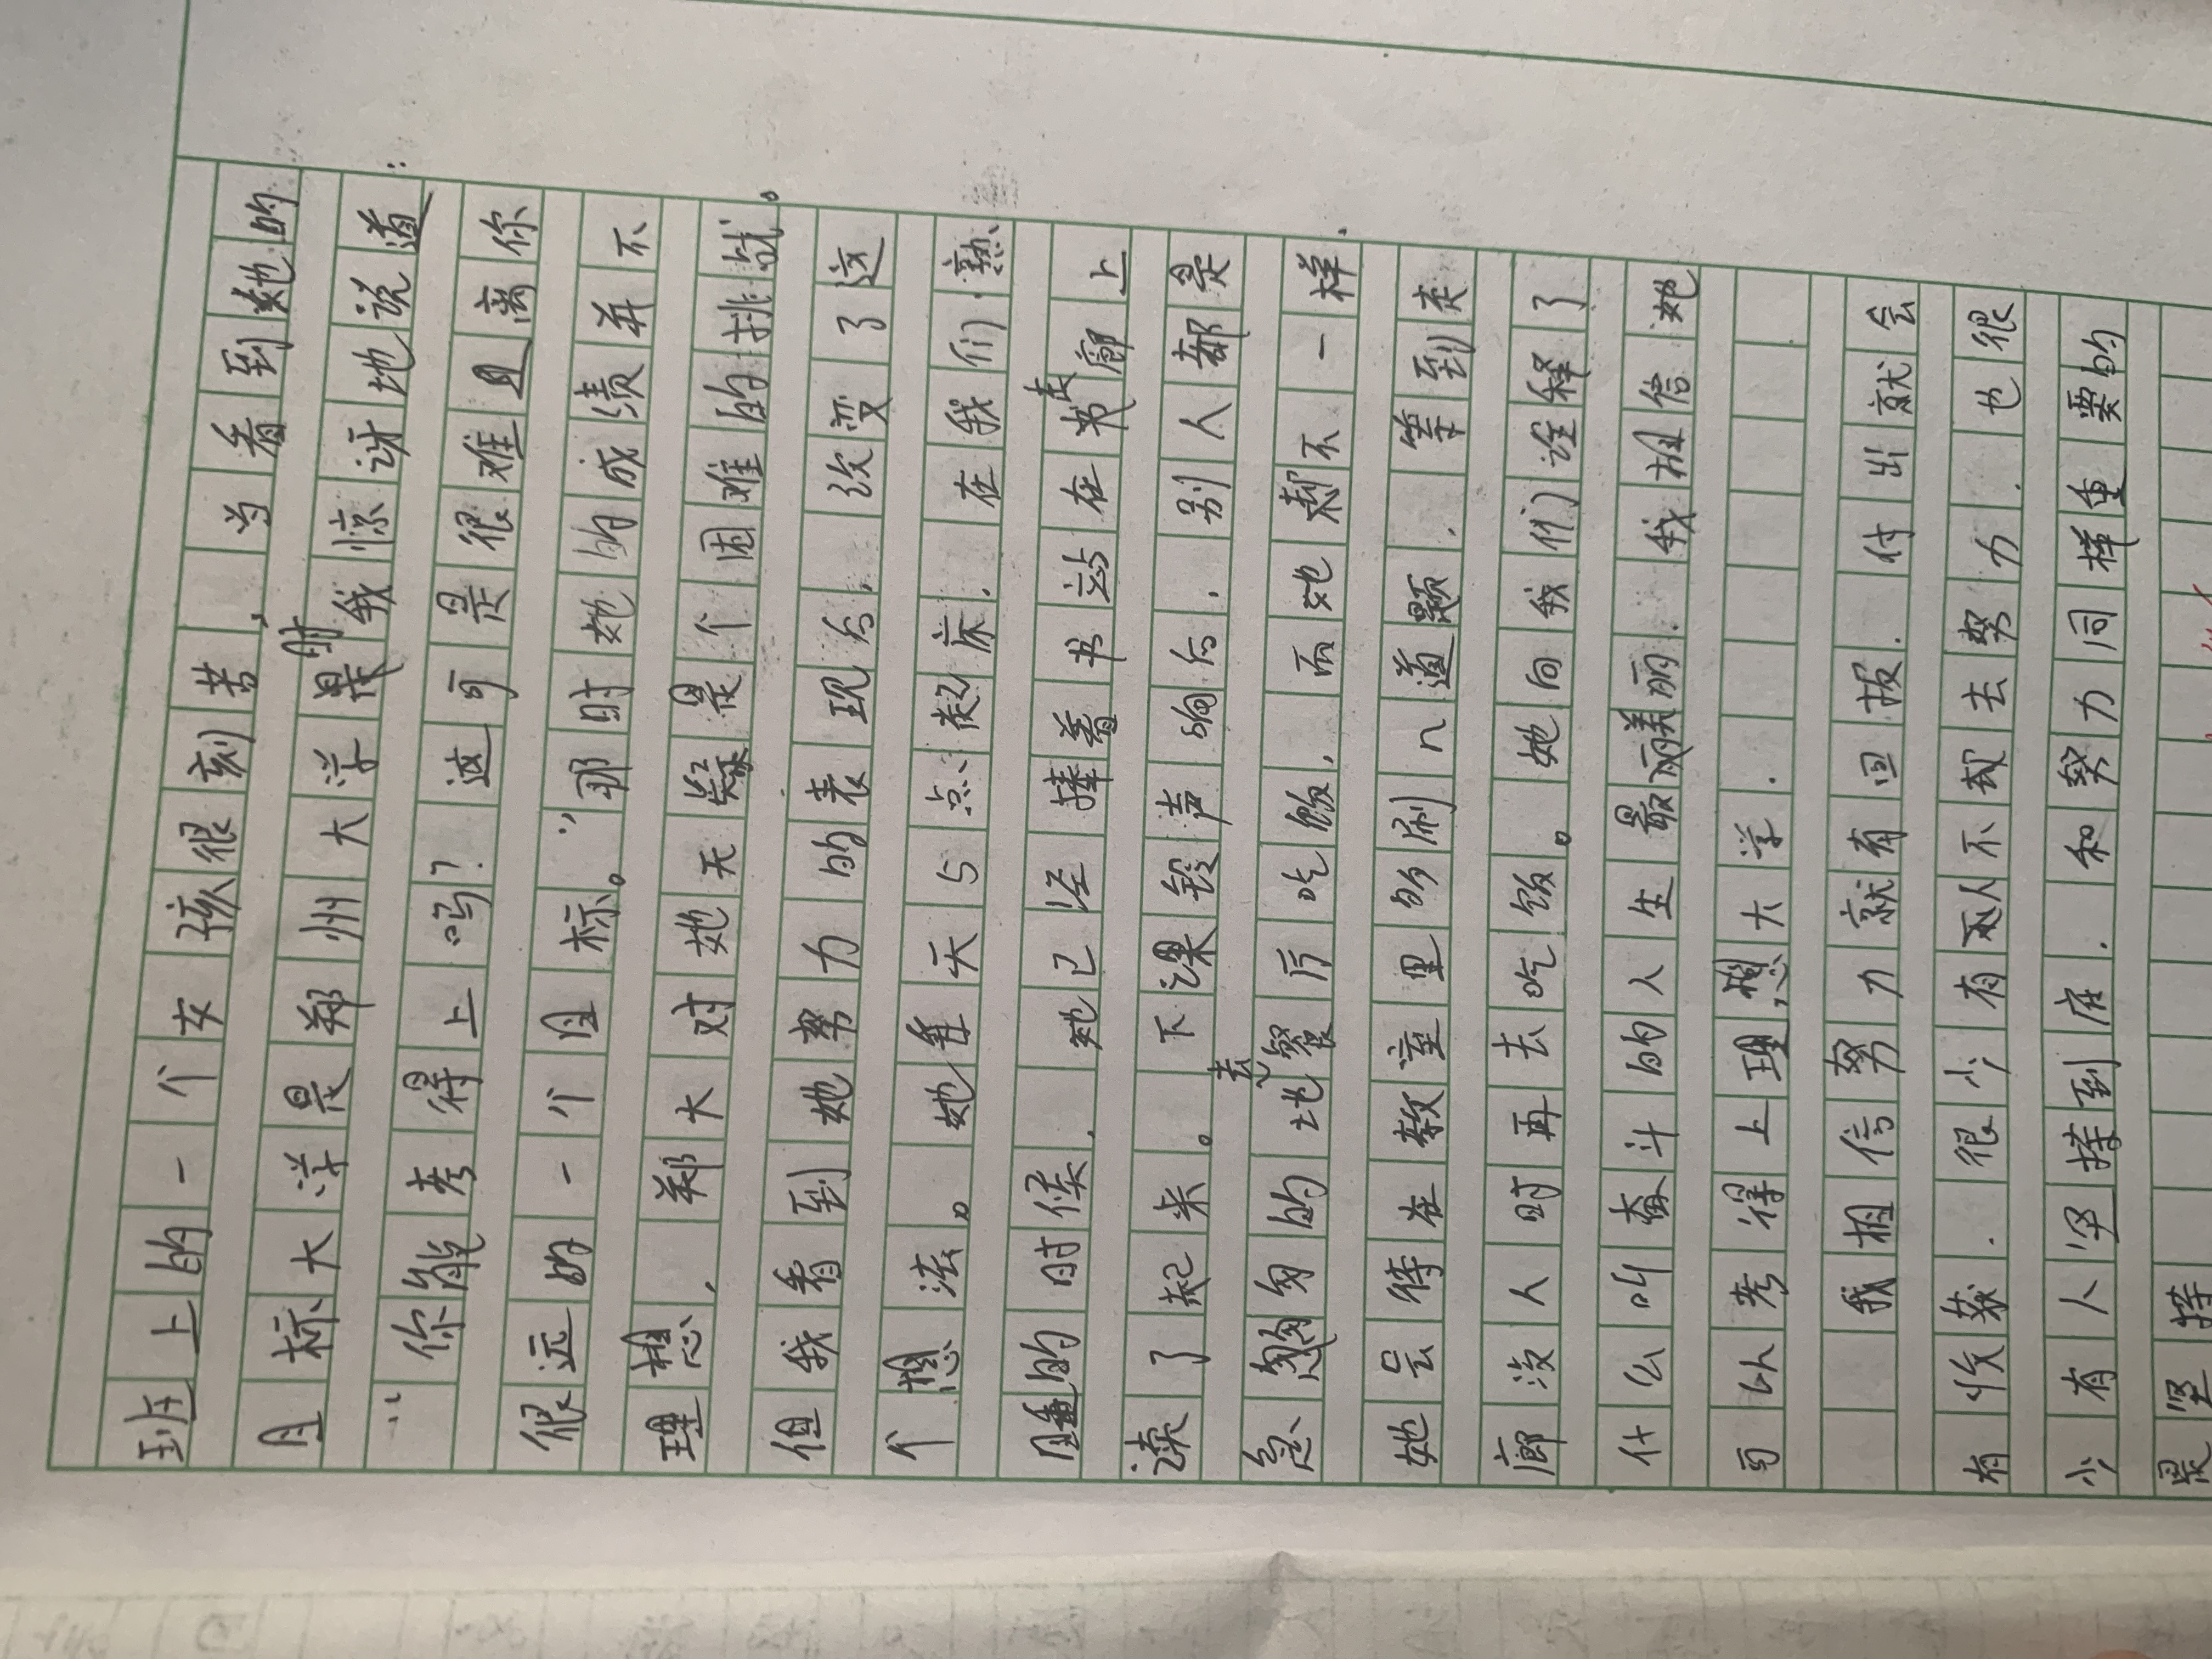 班上的一个女孩很刻苦,当看到她的
目标大学是郑州大学时我惊讶地说道:
“你能考得上吗?这可是很难且离你
很远的一个目标。”那时她的成绩并不
理想,郑大对她无疑是个困难的挑战。
但我看到她努力的表现后,改变了这
个想法。她每天5点起床,在我们熟
睡的时候,她已经捧着书站在走廊上
读了起来。下课铃声响后,别人都是
急忽匆的地去餐厅吃饭,而她却不一样,
她会待在教室里多刷几道题,等到走
廊没人时再去吃饭。她向我们诠释了
什么叫奋斗的人生最美丽,我相信她
可以考得上理想大学.
我相信努力就有回报,付出就会
有收获.很少有人不去努力,也很
少有人坚持到底,和努力同样重要的
是坚持